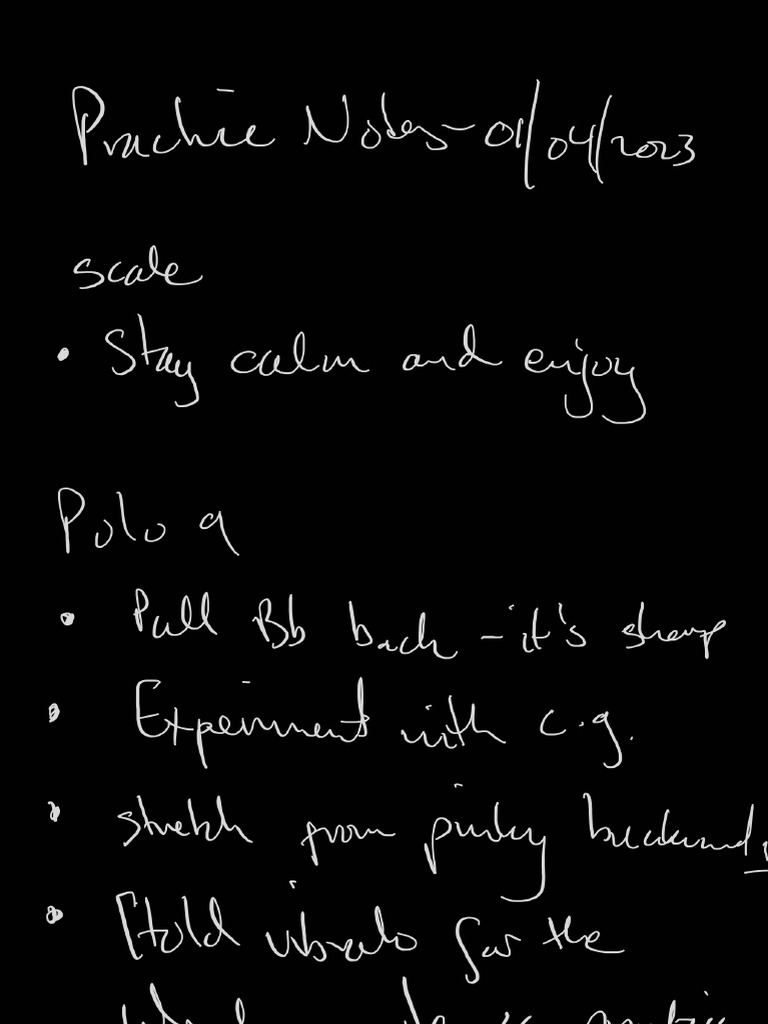 Practice Notes - 01/04/2023
scale
• Stay calm and enjoy
Polo 9
• Pull Bb back - it's sharp
• Experiment with c.g.
• stretch from pinky backward
• Hold vibrato for the